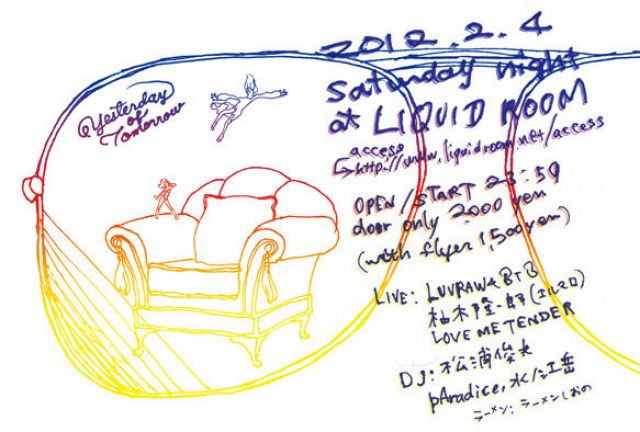 Yesterday
of
Tomorrow
2012.2.4
Saturday night
at LIQUID ROOM
access
http://www.liquidroom.net/access
OPEN/START 23:59
door only 2000 yen
(with flyer 1,500 yen)
LIVE: LUVRAW & BTB
柚木隆一郎(エルマロ)
LOVE ME TENDER
DJ: 松浦俊夫
pAradice, 水江岳
ラーメン: ラーメンしおの